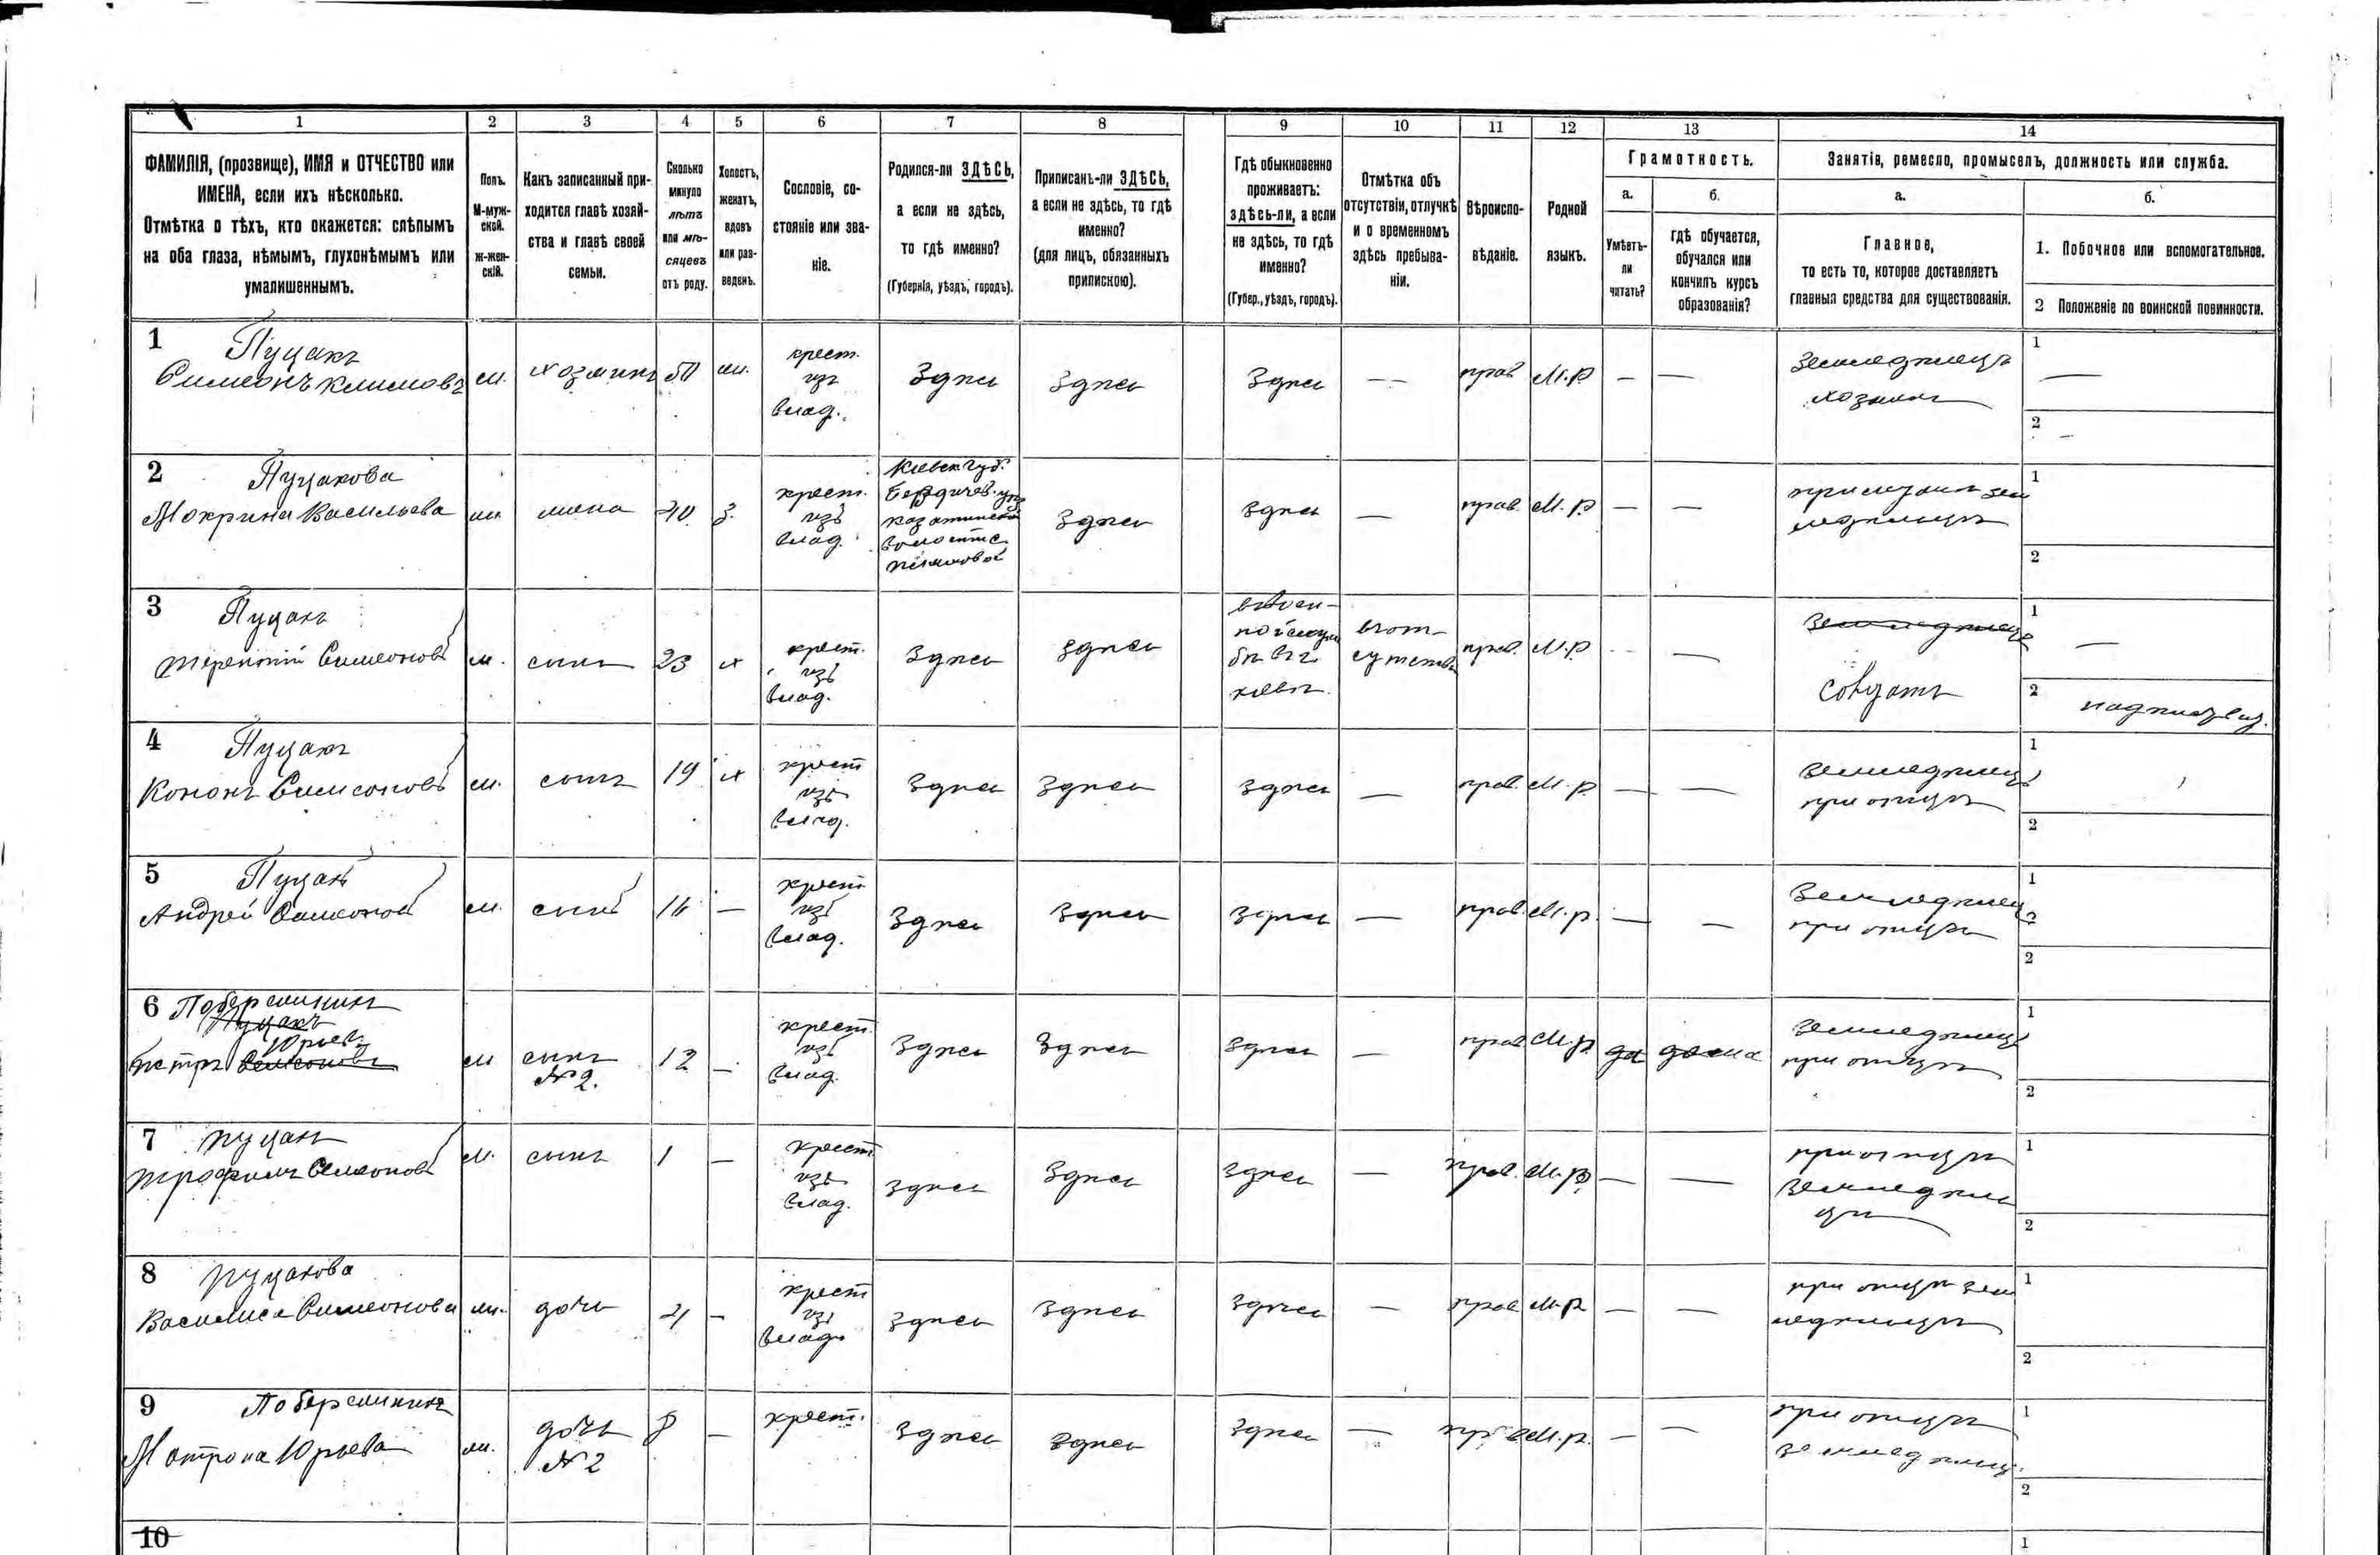 1 2 3 4 5 6 7 8 9 10 11 12 13 14
ФАМИЛІЯ, (прозвище), ИМЯ и ОТЧЕСТВО или
ИМЕНА, если ихъ нѣсколько.
Отмѣтка о тѣхъ, кто окажется: слѣпымъ
на оба глаза, нѣмымъ, глухонѣмымъ или
умалишеннымъ.
Полъ.
М-муж-
ской.
ж-жен-
скій.
Какъ записанный при-
ходится главѣ хозяй-
ства и главѣ своей
семьи.
Сколько
минуло
лѣтъ
или мѣ-
сяцевъ
отъ роду.
Холостъ,
женатъ,
вдовъ
или раз-
веденъ.
Сословіе, со-
стояніе или зва-
ніе.
Родился-ли ЗДѢСЬ,
а если не здѣсь,
то гдѣ именно?
(Губернія, уѣздъ, городъ).
Приписанъ-ли ЗДѢСЬ,
а если не здѣсь, то гдѣ
именно?
(для лицъ, обязанныхъ
припискою).
Гдѣ обыкновенно
проживаетъ:
здѣсь-ли, а если
не здѣсь, то гдѣ
именно?
(Губер., уѣздъ, городъ).
Отмѣтка объ
отсутствіи, отлучкѣ
и о временномъ
здѣсь пребыва-
ніи.
Вѣроиспо-
вѣданіе.
Родной
языкъ.
Грамотность.
а.
Умѣетъ-
ли
читать?
б.
гдѣ обучается,
обучался или
кончилъ курсъ
образованія?
Занятіе, ремесло, промыселъ, должность или служба.
а.
Главное,
то есть то, которое доставляетъ
главныя средства для существованія.
б.
1. Побочное или вспомогательное.
2 Положеніе по воинской повинности.
1 Пуцакъ
Симеонъ Климовъ м. хозяинъ 50 ж. крест. изъ влад. Здѣсь Здѣсь Здѣсь — — прав М.р — — Земледѣлецъ
хозяинъ
1 —
2 —
2 Пуцакова
Мокрина Васильева ж. жена 40 з. крест. изъ влад. Кіевск губ.
Бердичев. уѣз
Казатинской
Волости с.
здѣсь здѣсь — прав. М.р. — — при мужѣ зем
ледѣлецъ
1
2
3 Пуцакъ
Терентій Симеоновъ м. сынъ 23 х крест. изъ влад. Здѣсь здѣсь
въ воен-
ной служ
бѣ въ г.
Кіевѣ
въ от-
сутствіи
прав. М.р. — — Земледѣлецъ
Солдатъ
1 —
2
4 Пуцакъ
Кононъ Симеоновъ м. сынъ 19 х крест изъ влад. Здѣсь Здѣсь здѣсь — прав. М.р. — — Земледѣлецъ
при отцѣ
1
2
5 Пуцакъ
Андрей Симеоновъ м. сынъ 16 — крест изъ влад. Здѣсь Здѣсь здѣсь — прав. М.р. — — Земледѣлецъ
при отцѣ
1
2
6 Побережникъ
Пуцакъ
Юрьев.
Петръ Симеоновъ м сынъ
№ 2.
12 — крест. изъ влад. Здѣсь Здѣсь здѣсь — прав М.р. да дома Земледѣлецъ
при отцѣ
1
2
7 Пуцакъ
Трофимъ Симеоновъ м. сынъ 1 — крест изъ влад. здѣсь Здѣсь здѣсь — прав. М.р. — — при отцѣ
Земледѣль
цѣ
1
2
8 Пуцакова
Василиса Симеонова ж. дочь 4 — крест изъ влад. здѣсь здѣсь здѣсь — прав М.р — — при отцѣ зем
ледѣльцѣ
1
2
9 Побережникъ
Матрона Юрьева ж. дочь
№ 2
8 — крест. здѣсь здѣсь здѣсь — пр М.р. — — при отцѣ
земледѣлц.
1
2
10
1